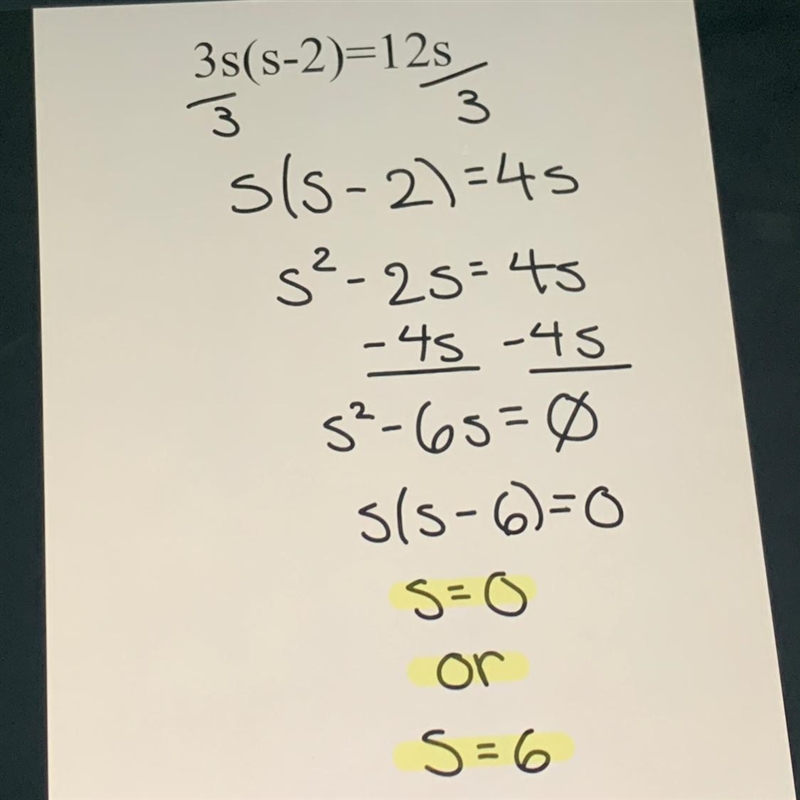 3s(s-2)=12s
3 3
s(s-2)=4s
s²-2s=4s
-4s -4s
s²-6s=∅
s(s-6)=0
s=0
or
s=6